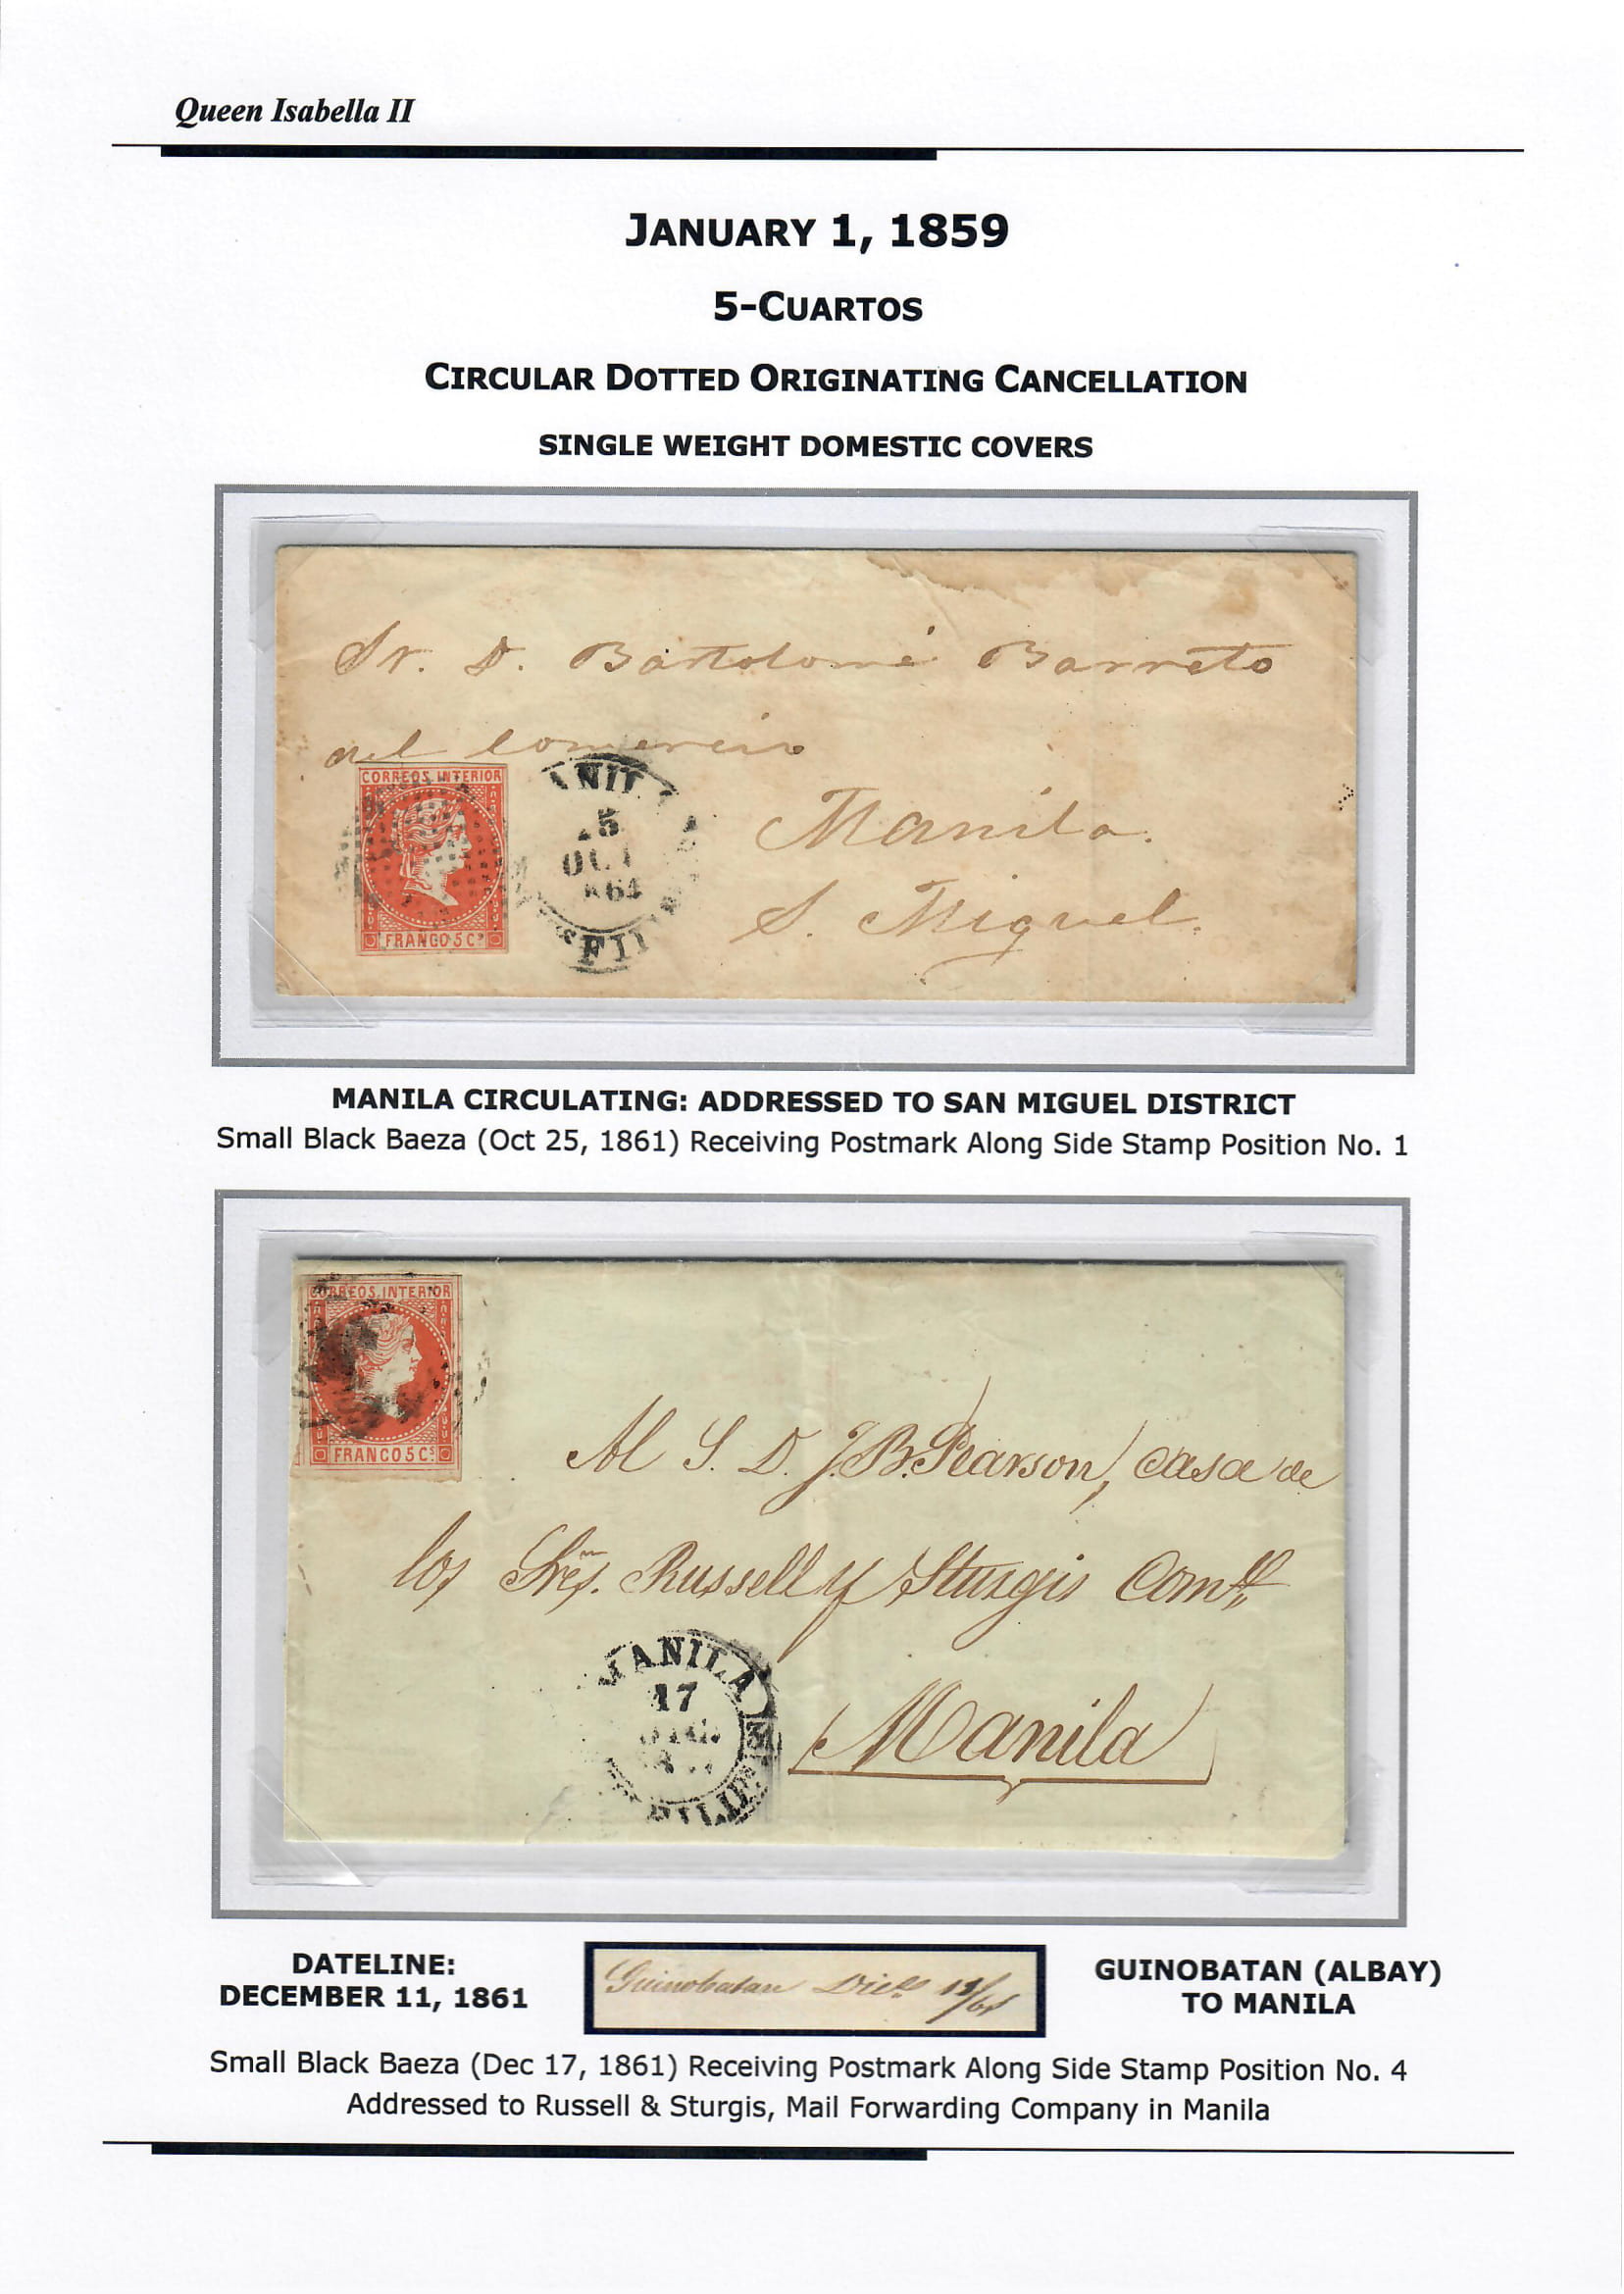 Queen Isabella II
JANUARY 1, 1859
5-CUARTOS
CIRCULAR DOTTED ORIGINATING CANCELLATION
SINGLE WEIGHT DOMESTIC COVERS
Sr. D. Bartolomé Barreto
del Comercio
CORREOS INTERIOR
FRANCO 5 Cs
ANIL
5
OCT
861
FIL
Manila.
S. Miguel.
MANILA CIRCULATING: ADDRESSED TO SAN MIGUEL DISTRICT
Small Black Baeza (Oct 25, 1861) Receiving Postmark Along Side Stamp Position No. 1
CORREOS INTERIOR
FRANCO 5 Cs
Al S. D. J.B. Pearson, casa de
los Sres. Russell y Sturgis
MANILA
17
DIC.
FILIP
Manila
DATELINE:
DECEMBER 11, 1861
Guinobatan
GUINOBATAN (ALBAY)
TO MANILA
Small Black Baeza (Dec 17, 1861) Receiving Postmark Along Side Stamp Position No. 4
Addressed to Russell & Sturgis, Mail Forwarding Company in Manila